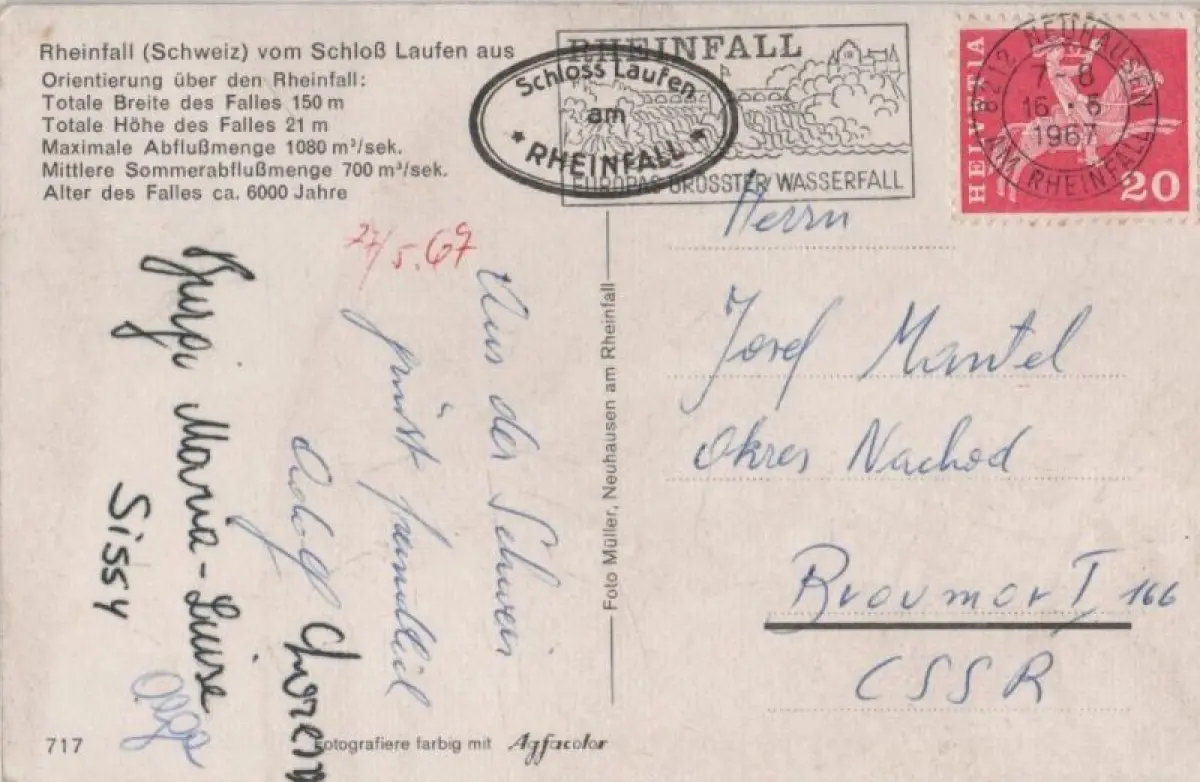 Rheinfall (Schweiz) vom Schloß Laufen aus
Orientierung über den Rheinfall:
Totale Breite des Falles 150 m
Totale Höhe des Falles 21 m
Maximale Abflußmenge 1080 m³/sek.
Mittlere Sommerabflußmenge 700 m³/sek.
Alter des Falles ca. 6000 Jahre
RHEINFALL
EUROPAS GRÖSSTER WASSERFALL
Schloss Laufen
am
* RHEINFALL *
8212 NEUHAUSEN
AM RHEINFALL
7-8
16.
1967
HELVETIA
20
Aus der Schweiz
grüsst
Adolf
Maria-Luise
Sissy
Olga
Foto Müller, Neuhausen am Rheinfall
Herrn
Josef Mantel
Okres Nachod
Broumov I 166
CSSR
717
Fotografiere farbig mit Agfacolor